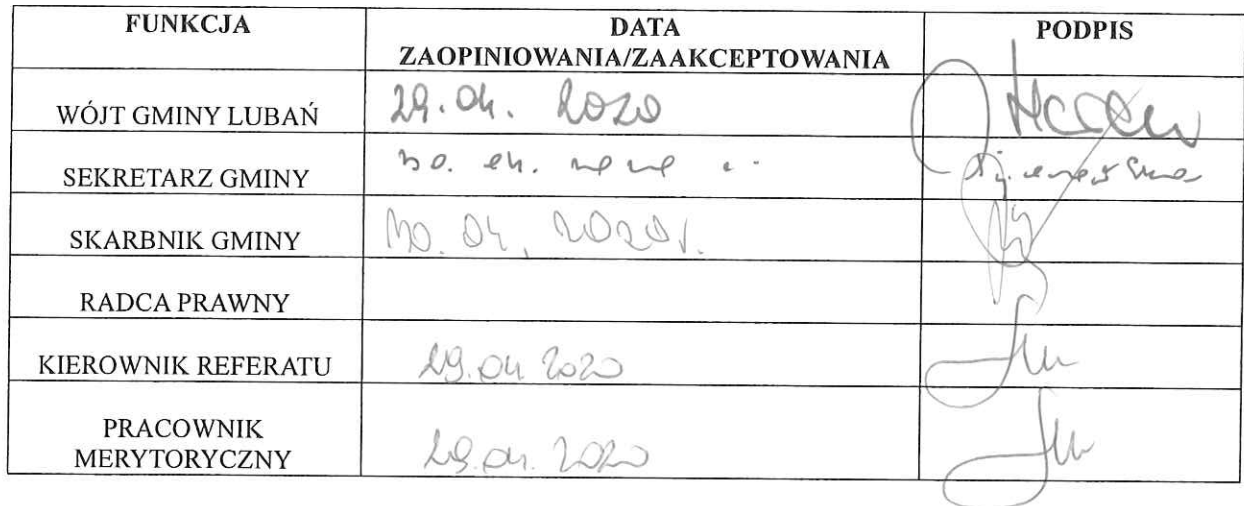 FUNKCJA DATA PODPIS
ZAOPINIOWANIA/ZAAKCEPTOWANIA
WÓJT GMINY LUBAŃ 29.04. 2020
SEKRETARZ GMINY
SKARBNIK GMINY 30.04.2020r.
RADCA PRAWNY
KIEROWNIK REFERATU 29.04 2020
PRACOWNIK
MERYTORYCZNY 29.04. 2020